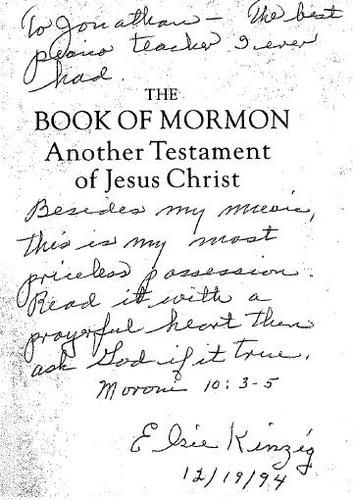 To Jonathan - The best
piano teacher I ever
had.
THE
BOOK OF MORMON
Another Testament
of Jesus Christ
Besides my music,
this is my most
priceless possession.
Read it with a
prayerful heart then
ask God if it true.
Moroni 10:3-5
Elsie Kinzig
12/19/94